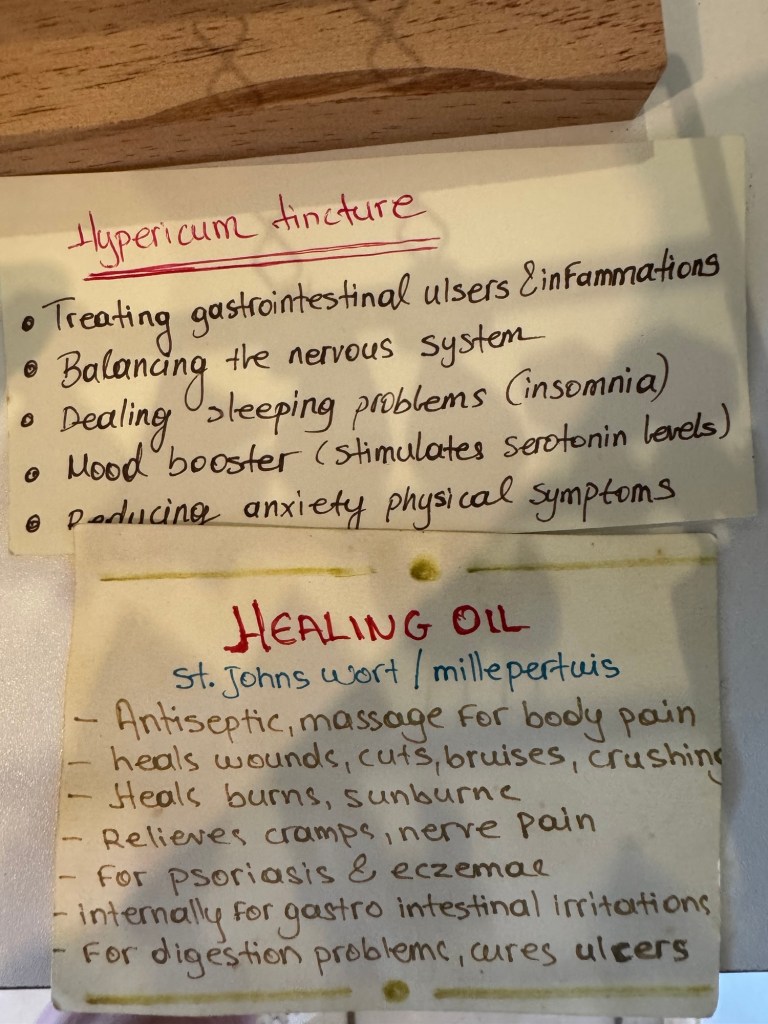 Hypericum tincture
• Treating gastrointestinal ulsers & infammations
• Balancing the nervous system
• Dealing sleeping problems (insomnia)
• Mood booster (stimulates serotonin levels)
• Reducing anxiety physical symptoms
HEALING OIL
st. Johns wort / millepertuis
- Antiseptic, massage for body pain
- heals wounds, cuts, bruises, crushing
- Heals burns, sunburns
- Relieves cramps, nerve pain
- For psoriasis & eczemas
- internally for gastro intestinal irritations
- For digestion problems, cures ulcers